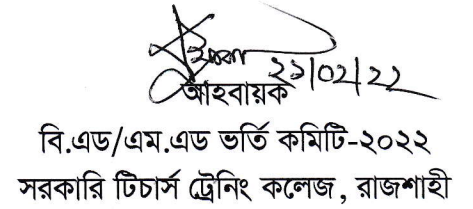 ২১/০২/২২
আহবায়ক
বি.এড/এম.এড ভর্তি কমিটি-২০২২
সরকারি টিচার্স ট্রেনিং কলেজ, রাজশাহী